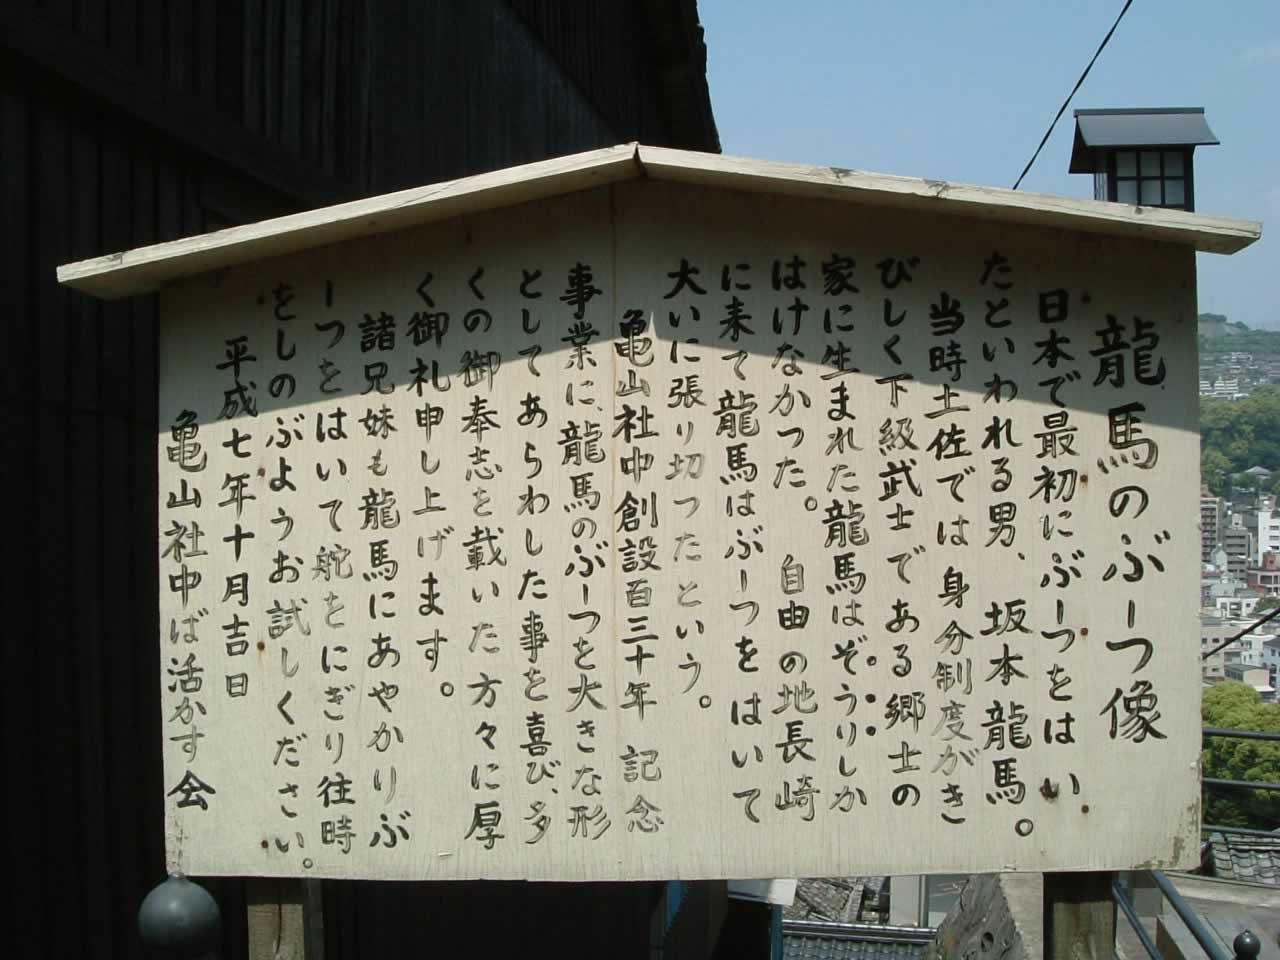 龍馬のぶーつ像
日本で最初にぶーつをはい
たといわれる男、坂本龍馬。
当時土佐では身分制度がき
びしく下級武士である郷士の
家に生まれた龍馬はぞうりしか
はけなかった。 自由の地長崎
に来て龍馬はぶーつをはいて
大いに張り切つたという。
亀山社中創設百三十年 記念
事業に、龍馬のぶーつを大きな形
としてあらわした事を喜び、多
くの御奉志を載いた方々に厚
く御礼申し上げます。
諸兄妹も龍馬にあやかりぶ
ーつをはいて舵をにぎり往時
をしのぶようお試しください。
平成七年十月吉日
亀山社中ば活かす会